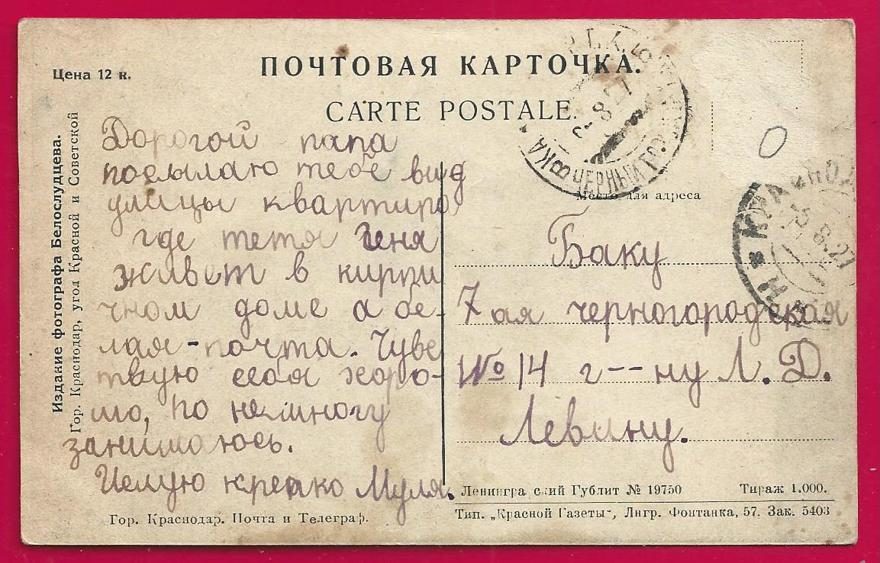 ПОЧТОВАЯ КАРТОЧКА.
CARTE POSTALE.
Цена 12 к.
Издание фотографа Белослудцева.
Гор. Краснодар, угол Красной и Советской
Дорогой папа
посылаю тебе вид
улицы квартира
где тетя Женя
живет в кирпи
чном доме а бе-
лая-почта. Чувс
твую себя хоро-
шо, по немногу
занимаюсь.
Целую крепко Муля.
Гор. Краснодар. Почта и Телеграф.
Место для адреса
Баку
7 ая черногородская
№ 14 г--ну Л. Д.
Левину.
Ленингра ский Гублит № 19750 Тираж 1.000.
Тип. „Красной Газеты", Лнгр. Фонтанка, 57. Зак. 5403
ЧЕРНЫЙ ГОР
8 27
5 8 27